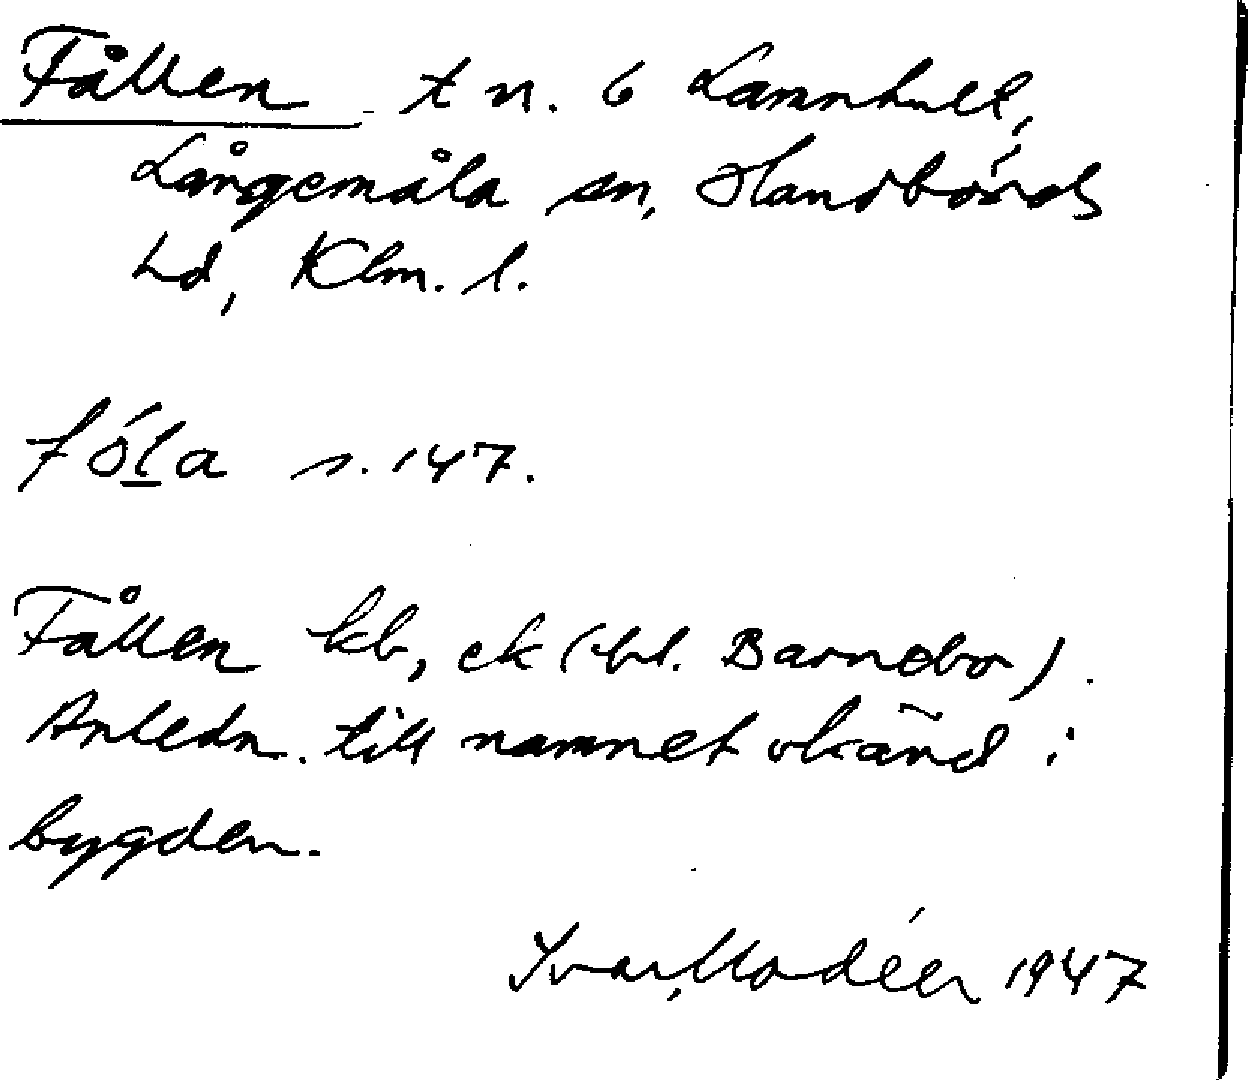 Fållen t n. 6 Lamnhult,
Långemåla sn, Handbörds
hd, Klm. l.
fóla s. 147.
Fållen kb, ek (bl. Barnebo).
Anledn. till namnet okänd i
bygden.
Ivar Modéer 1947